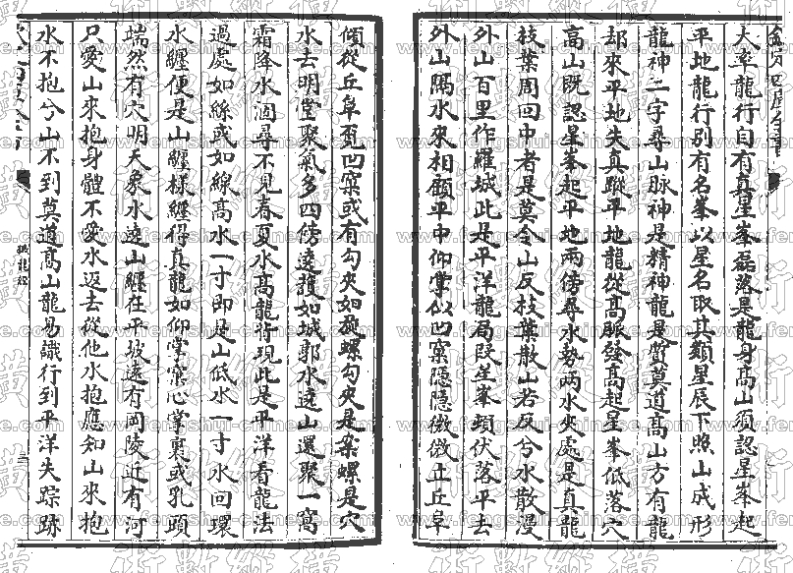 欽定四庫全書
大率龍行自有真星峯磊落是龍身高山須認星峯起
平地龍行别有名峯以星名取其類星辰下照山成形
龍神二字尋山脉神是精神龍是質莫道高山方有龍
却來平地失真蹤平地龍從高脉發高起星峯低落穴
高山既認星峯起平地兩傍尋水勢兩水夾處是真龍
枝葉周回中者是莫令山反枝葉散山若反兮水散漫
外山百里作羅城此是平洋龍局段星峯頓伏落平去
外山隔水來相顧平中仰掌似凹窠隱隱微微立丘阜
傾從丘阜覔凹窠或有勾夾如旋螺勾夾是案螺是穴
水去明堂聚氣多四傍遶護如城郭水遶山還聚一窩
霜降水涸尋不見春夏水高龍背現此是平洋看龍法
過處如絲或如線高水一寸即是山低水一寸水回環
水纏便是山纏様纏得真龍如仰掌窠心掌裏或乳頭
端然有穴明天象水遶山纏在平坡遠有岡陵近有河
只愛山來抱身體不愛水返去從他水抱應知山來抱
水不抱兮山不到莫道高山龍易識行到平洋失踪跡
撼龍經
三
www.fengshui-chinese.com